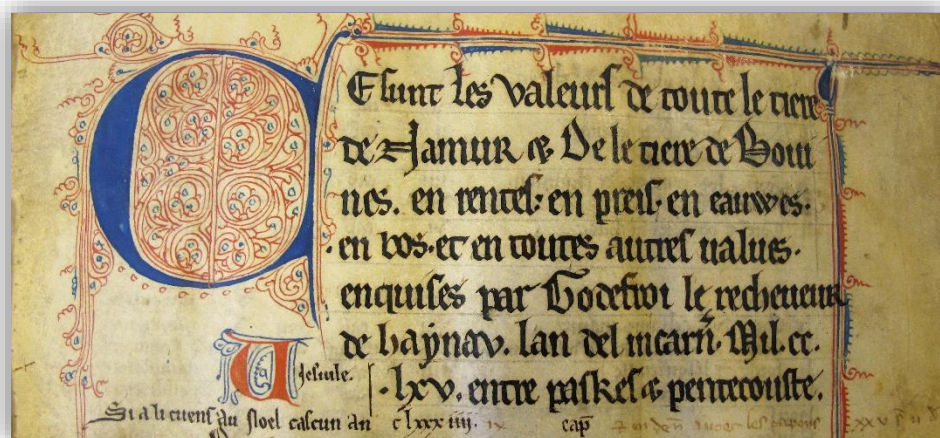 CE sunt les valeurs de toute le tiere
de Namur & De le tiere de Boui
nes. en rentes. en preis. en eauwes.
en bos. et en toutes autres values.
enquises par Godefroi le recheueur
de haynau. lan del incarn. Mil. cc.
. lxv. entre paskes & pentecouste.
Si a li cuens au floel cascun an c lxxx iiii. ix cap